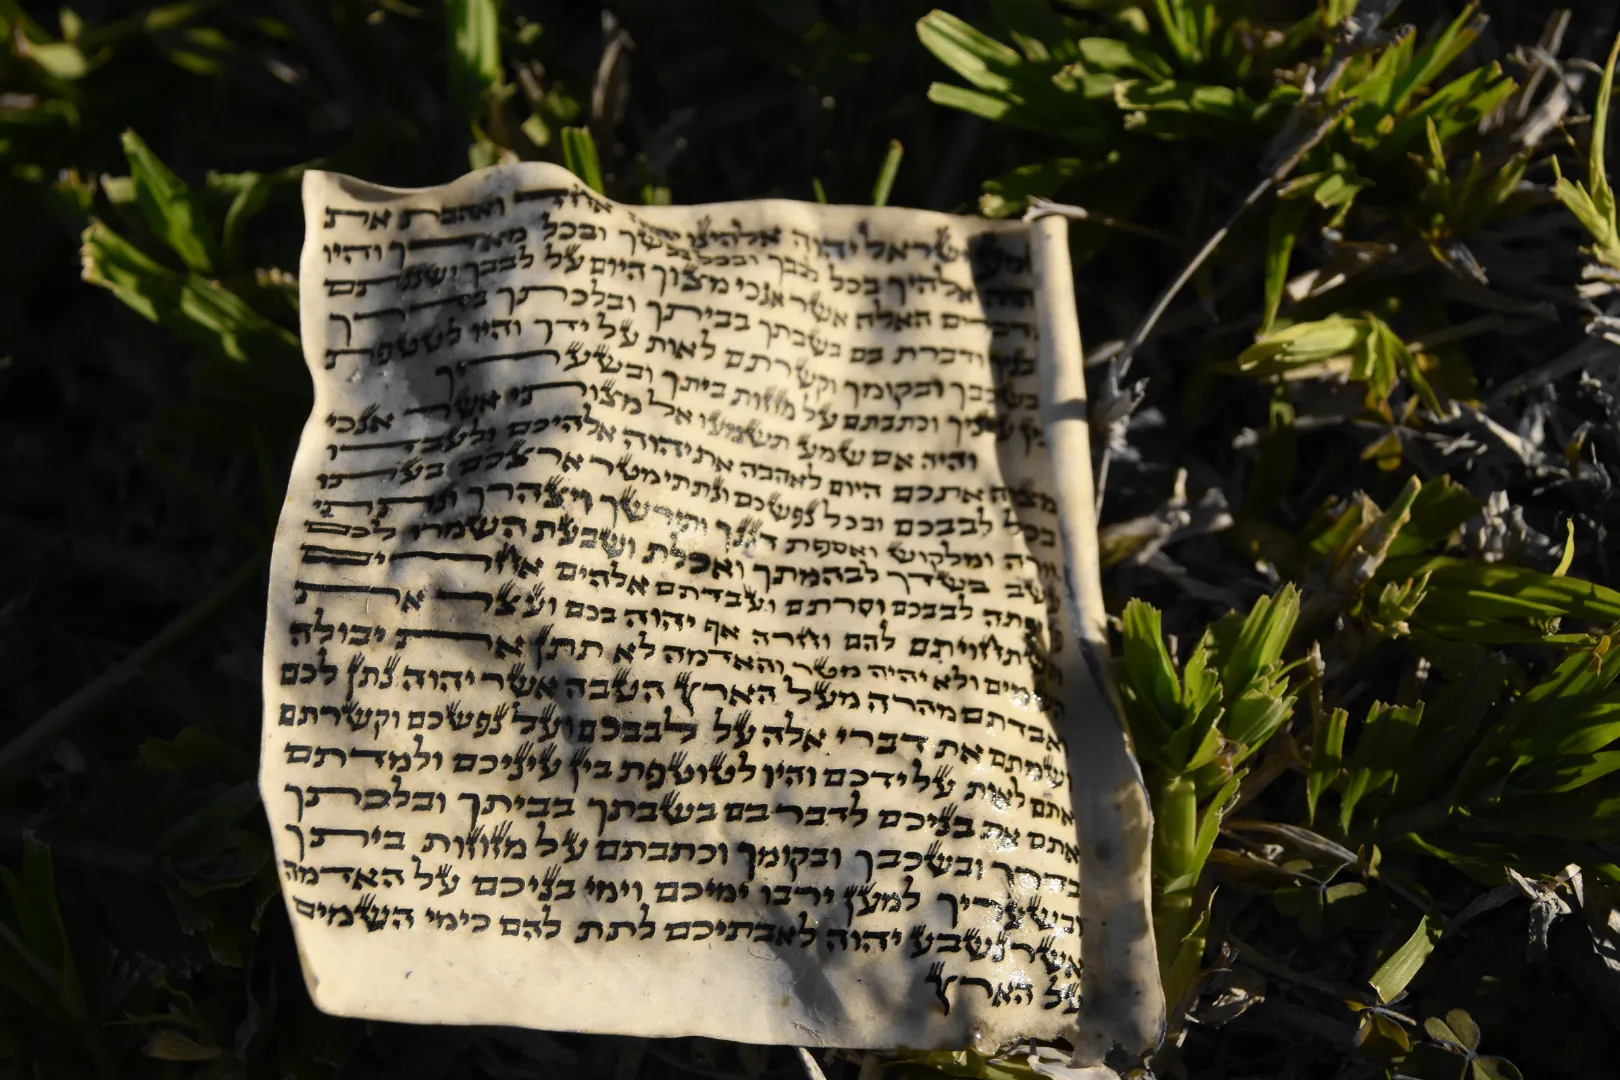 ישראל יהוה אלהינו אחד ואהבת את
יהוה אלהיך בכל לבבך ובכל נפשך ובכל מאדך והיו
הדברים האלה אשר אנכי מצוך היום על לבבך ושננתם
לבניך ודברת בם בשבתך בביתך ובלכתך בדרך
ובשכבך ובקומך וקשרתם לאות על ידך והיו לטטפת
בין עיניך וכתבתם על מזזות ביתך ובשעריך
והיה אם שמע תשמעו אל מצותי אשר אנכי
מצוה אתכם היום לאהבה את יהוה אלהיכם ולעבדו
בכל לבבכם ובכל נפשכם ונתתי מטר ארצכם בעתו
יורה ומלקוש ואספת דגנך ותירשך ויצהרך ונתתי
עשב בשדך לבהמתך ואכלת ושבעת השמרו לכם
יפתה לבבכם וסרתם ועבדתם אלהים אחרים
והשתחויתם להם וחרה אף יהוה בכם ועצר את
השמים ולא יהיה מטר והאדמה לא תתן את יבולה
ואבדתם מהרה מעל הארץ הטבה אשר יהוה נתן לכם
ושמתם את דברי אלה על לבבכם ועל נפשכם וקשרתם
אתם לאות על ידכם והיו לטוטפת בין עיניכם ולמדתם
אתם את בניכם לדבר בם בשבתך בביתך ובלכתך
בדרך ובשכבך ובקומך וכתבתם על מזוזות ביתך
ובשעריך למען ירבו ימיכם וימי בניכם על האדמה
אשר נשבע יהוה לאבתיכם לתת להם כימי השמים
על הארץ